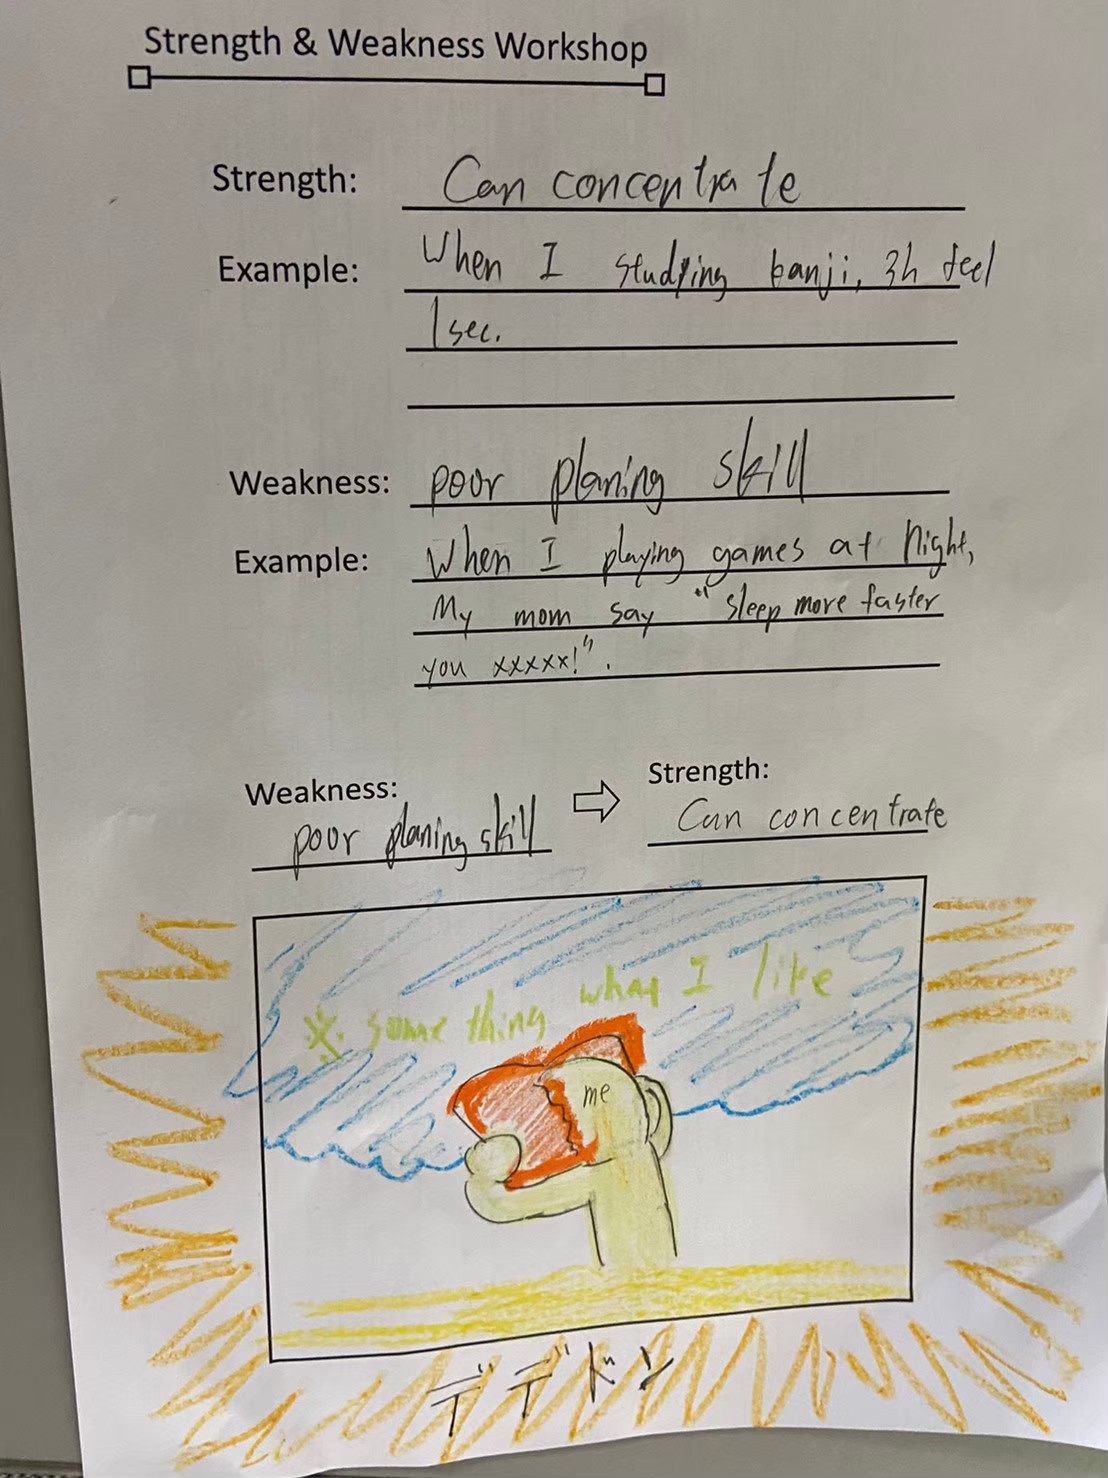 Strength & Weakness Workshop
Strength: Can concentrate
Example: When I studying kanji, 3h feel
1 sec.
Weakness: poor planing skill
Example: When I playing games at night,
My mom say "sleep more faster
you xxxxx!".
Weakness: Strength:
poor planing skill ⇨ Can concentrate
※ some thing what I like
me
デデドン